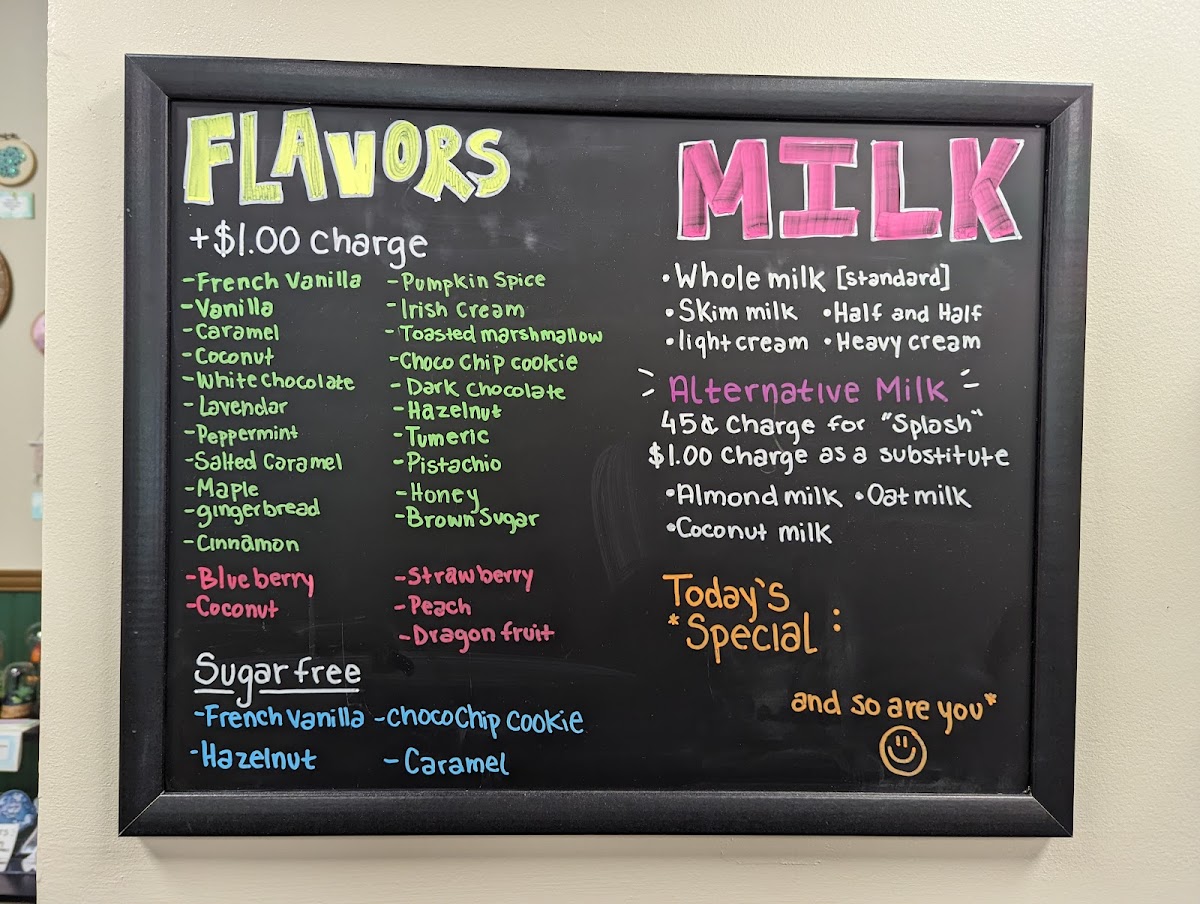 FLAVORS
+$1.00 charge
-French Vanilla
-Vanilla
-Caramel
-Coconut
-White chocolate
-Lavendar
-Peppermint
-Salted Caramel
-Maple
-gingerbread
-Cinnamon
-Pumpkin Spice
-Irish Cream
-Toasted marshmallow
-Choco Chip cookie
-Dark chocolate
-Hazelnut
-Tumeric
-Pistachio
-Honey
-Brown Sugar
-Blueberry
-Coconut
-Strawberry
-Peach
-Dragon fruit
Sugar free
-French Vanilla -chocoChip cookie
-Hazelnut -Caramel
MILK
•Whole milk [standard]
•Skim milk •Half and Half
•light cream •Heavy cream
Alternative Milk
45¢ Charge for "Splash"
$1.00 Charge as a substitute
•Almond milk •Oat milk
•Coconut milk
Today's
*Special :
and so are you*